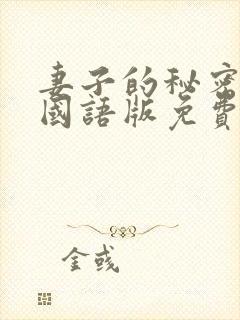 妻子的秘密
國語版免費
金彧